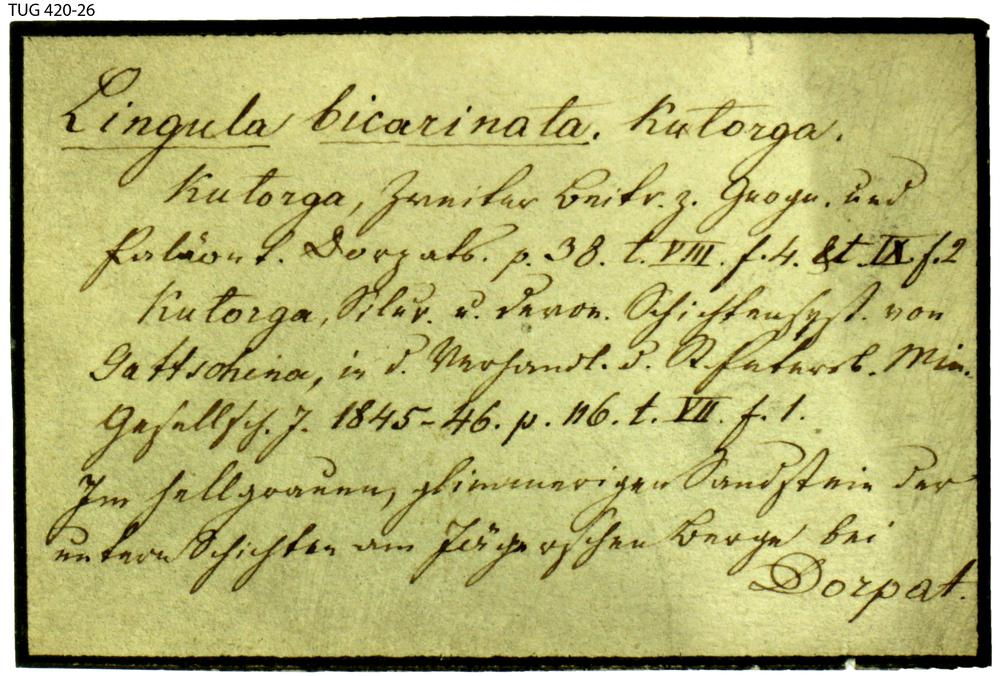 TUG 420-26
Lingula bicarinata. Kutorga.
Kutorga, Zweiter Beitr. z. Geogn. und
Paläont. Dorpats. p. 38. t. VIII. f. 4. & t. IX f. 2
Kutorga, Silur. u. devon. Schichtensyst. von
Gattschina, in d. Verhandl. d. St. Petersb. Min.
Gesellsch. J. 1845-46. p. 116. t. VII. f. 1.
Im hellgrauen, glimmerigen Sandstein der
untern Schichten am Jägerschen Berge bei
Dorpat.